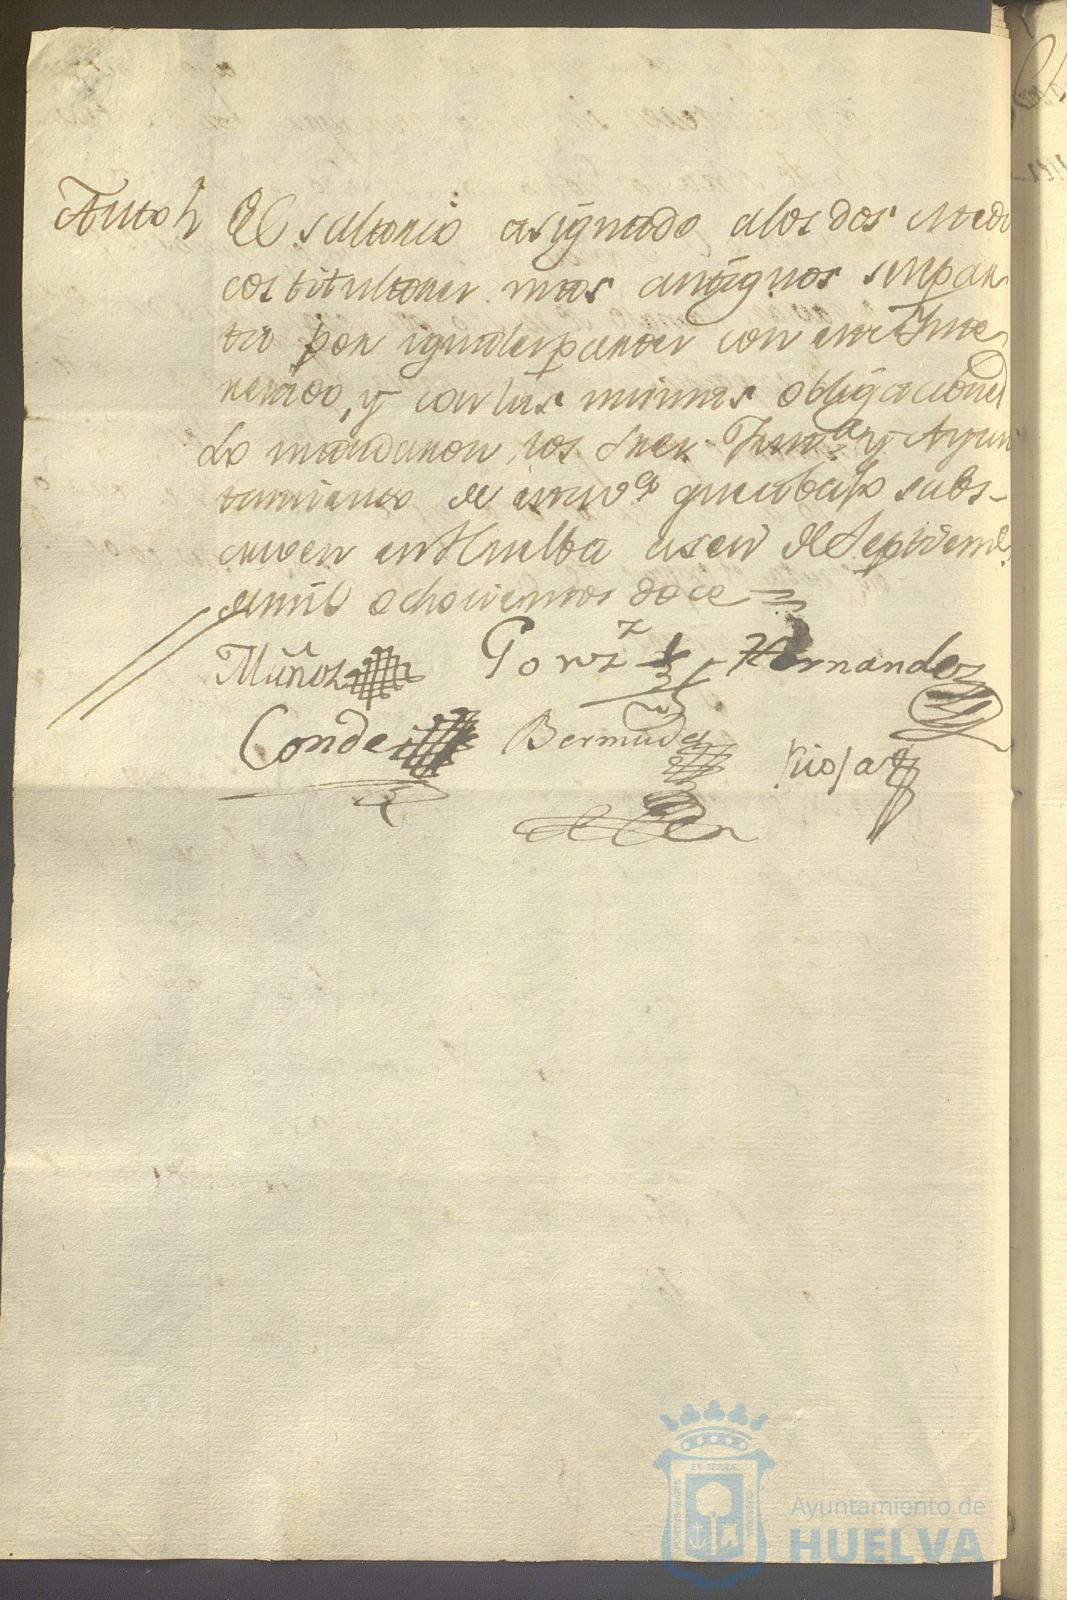 Auto
El salario asignado alos dos Medi
cos titulares mas antiguos separ
ta por iguales partes con este Inte
resado, y con las mismas obligaciones
Lo mandaron los Sres Just.ª y Ayun
tamiento de esta v.ª que abajo subs-
criven en Huelba a seis de Septiembe.
de mil ochocientos doce=
Muñoz Gonz.z Hernandez
Conde Bermudez
EX TERRÆ
PORTUS MARIS
CUSTODIA
Ayuntamiento de
HUELVA